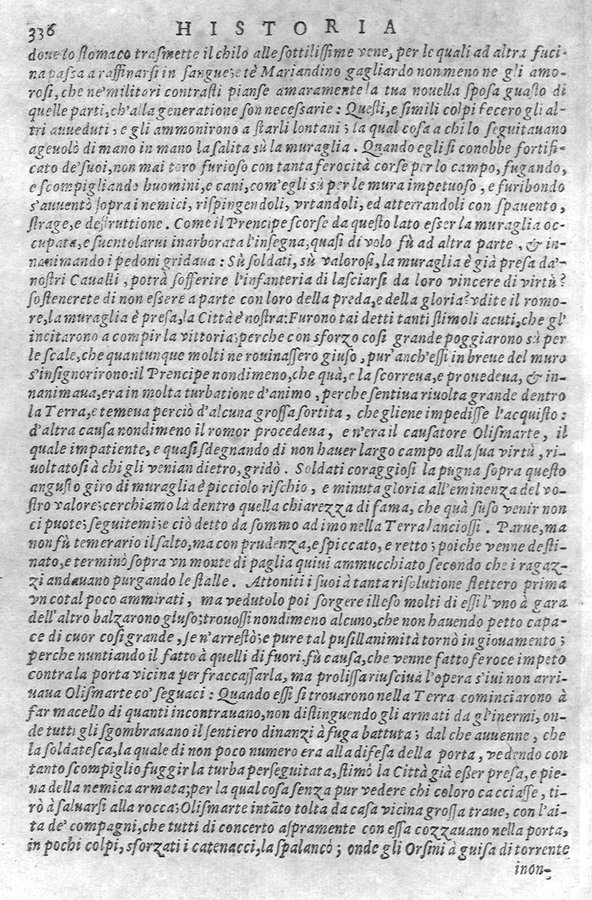 336 HISTORIA
doue lo stomaco trasmette il chilo alle sottilissime vene, per le quali ad altra fuci-
na passa a raffinarsi in sangue; e tè Mariandino gagliardo non meno ne gli amo-
rosi, che ne' militori contrasti pianse amaramente la tua nouella sposa guasto di
quelle parti, ch'alla generatione son necessarie: Questi, e simili colpi fecero gli al-
tri aueduti; e gli ammonirono a starli lontani; la qual cosa a chi lo seguitauano
ageuolò di mano in mano la salita sù la muraglia. Quando egli si conobbe fortifi-
cato de' suoi, non mai toro furioso con tanta ferocità corse per lo campo, fugando,
e scompigliando huomini, e cani, com'egli sù per le mura impetuoso, e furibondo
s'auuentò sopra i nemici, rispingendoli, vrtandoli, ed atterrandoli con spauento,
strage, e destruttione. Come il Prencipe scorse da questo lato esser la muraglia oc-
cupata, e suentolarui inarborata l'insegna, quasi di volo fù ad altra parte, & in-
nanimando i pedoni gridaua: Sù soldati, sù valorosi, la muraglia è già presa da'
nostri Caualli, potrà sofferire l'infanteria di lasciarsi da loro vincere di virtù?
sostenerete di non essere a parte con loro della preda, e della gloria? vdite il romo-
re, la muraglia è presa, la Città è nostra: Furono tai detti tanti stimoli acuti, che gl'
incitarono a compir la vittoria; perche con sforzo cosi grande poggiarono sù per
le scale, che quantunque molti ne rouinassero giuso, pur'anch'essi in breue del muro
s'insignorirono: il Prencipe nondimeno, che quà, e la scorreua, e prouedeua, & in-
nanimaua, era in molta turbatione d'animo, perche sentiua riuolta grande dentro
la Terra, e temeua perciò d'alcuna grossa sortita, che gliene impedisse l'acquisto:
d'altra causa nondimeno il romor procedeua, e n'era il causatore Olismarte, il
quale impatiente, e quasi sdegnando di non hauer largo campo alla sua virtù, ri-
uoltatosi à chi gli venian dietro, gridò. Soldati coraggiosi la pugna sopra questo
angusto giro di muraglia è picciolo rischio, e minuta gloria all'eminenza del vo-
stro valore; cerchiamo là dentro quella chiarezza di fama, che quà suso venir non
ci puote; seguitemi; e ciò detto da sommo ad imo nella Terra lanciossi. Parue, ma
non fù temerario il salto, ma con prudenza, e spiccato, e retto; poiche venne desti-
nato, e terminò sopra vn monte di paglia quiui ammucchiato secondo che i ragaz-
zi andauano purgando le stalle. Attoniti i suoi à tanta risolutione stettero prima
vn cotal poco ammirati, ma vedutolo poi sorgere illeso molti di essi l'vno à gara
dell'altro balzarono giuso; trouossi nondimeno alcuno, che non hauendo petto capa-
ce di cuor cosi grande, se n'arrestò; e pure tal pusillanimità tornò in giouamento;
perche nuntiando il fatto à quelli di fuori, fù causa, che venne fatto feroce impeto
contra la porta vicina per fraccassarla, ma prolissa riusciua l'opera s'iui non arri-
uaua Olismarte co' seguaci: Quando essi si trouarono nella Terra cominciarono à
far macello di quanti incontrauano, non distinguendo gli armati da gl'inermi, on-
de tutti gli sgombrauano il sentiero dinanzi à fuga battuta; dal che auuenne, che
la soldatesca, la quale di non poco numero era alla difesa della porta, vedendo con
tanto scompiglio fuggir la turba perseguitata, stimò la Città già esser presa, e pie-
na della nemica armata; per la qual cosa senza pur vedere chi coloro cacciasse, ti-
rò à saluarsi alla rocca; Olismarte intãto tolta da casa vicina grossa traue, con l'ai-
ta de' compagni, che tutti di concerto aspramente con essa cozzauano nella porta,
in pochi colpi, sforzati i catenacci, la spalancò; onde gli Orsini à guisa di torrente
inon-